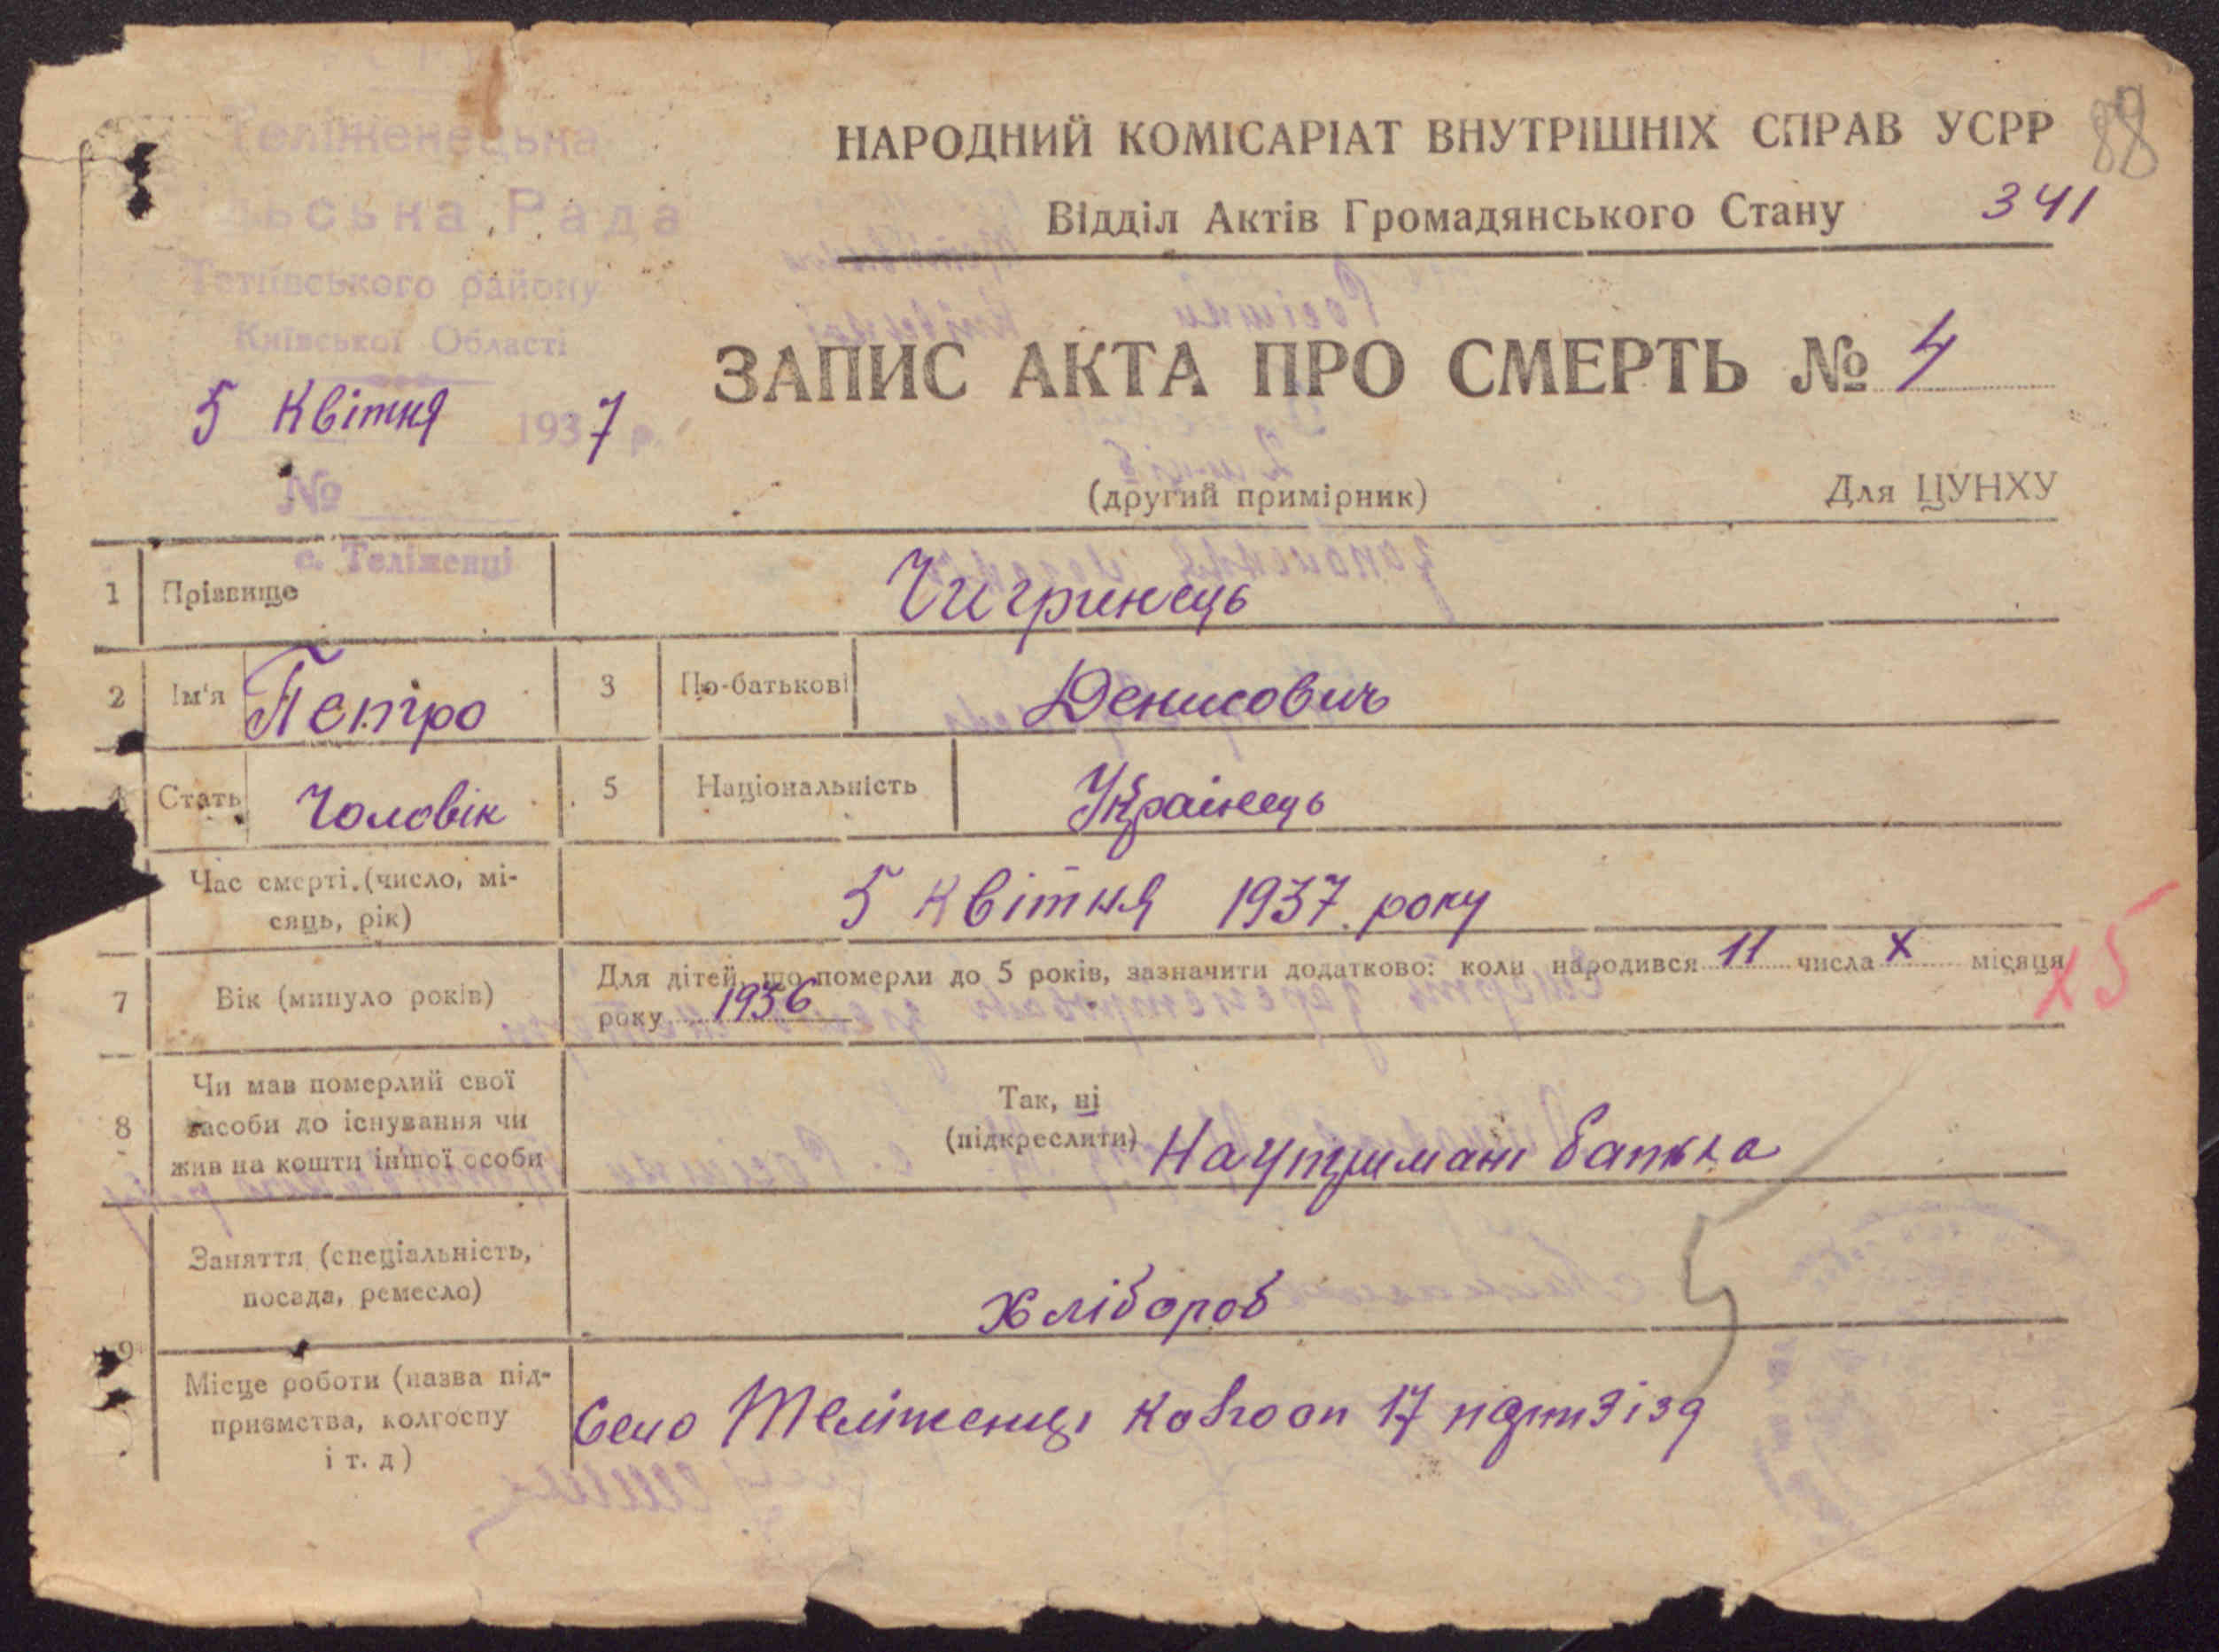 Теліженецька
Рада
Тетіївського району
Київської Області
5 Квітня 1937 р.
№
с. Теліженці
88
НАРОДНИЙ КОМІСАРІАТ ВНУТРІШНІХ СПРАВ УСРР
Відділ Актів Громадянського Стану 341
ЗАПИС АКТА ПРО СМЕРТЬ № 4
(другий примірник) Для ЦУНХУ
1 Прізвище Чигринець
2 Ім'я Петро 3 По-батькові Денисович
4 Стать Чоловік 5 Національність Українець
Час смерті (число, мі-
сяць, рік) 5 Квітня 1937 року
7 Вік (минуло років) Для дітей, що померли до 5 років, зазначити додатково: коли народився 11 числа X місяця
року 1936
x5
8 Чи мав померлий свої
засоби до існування чи
жив на кошти іншої особи
Так, ні
(підкреслити) На утримані батька
9 Заняття (спеціальність,
посада, ремесло) Хлібороб
5
Місце роботи (назва під-
приємства, колгоспу
і т. д) Село Теліженці 17 партзізд